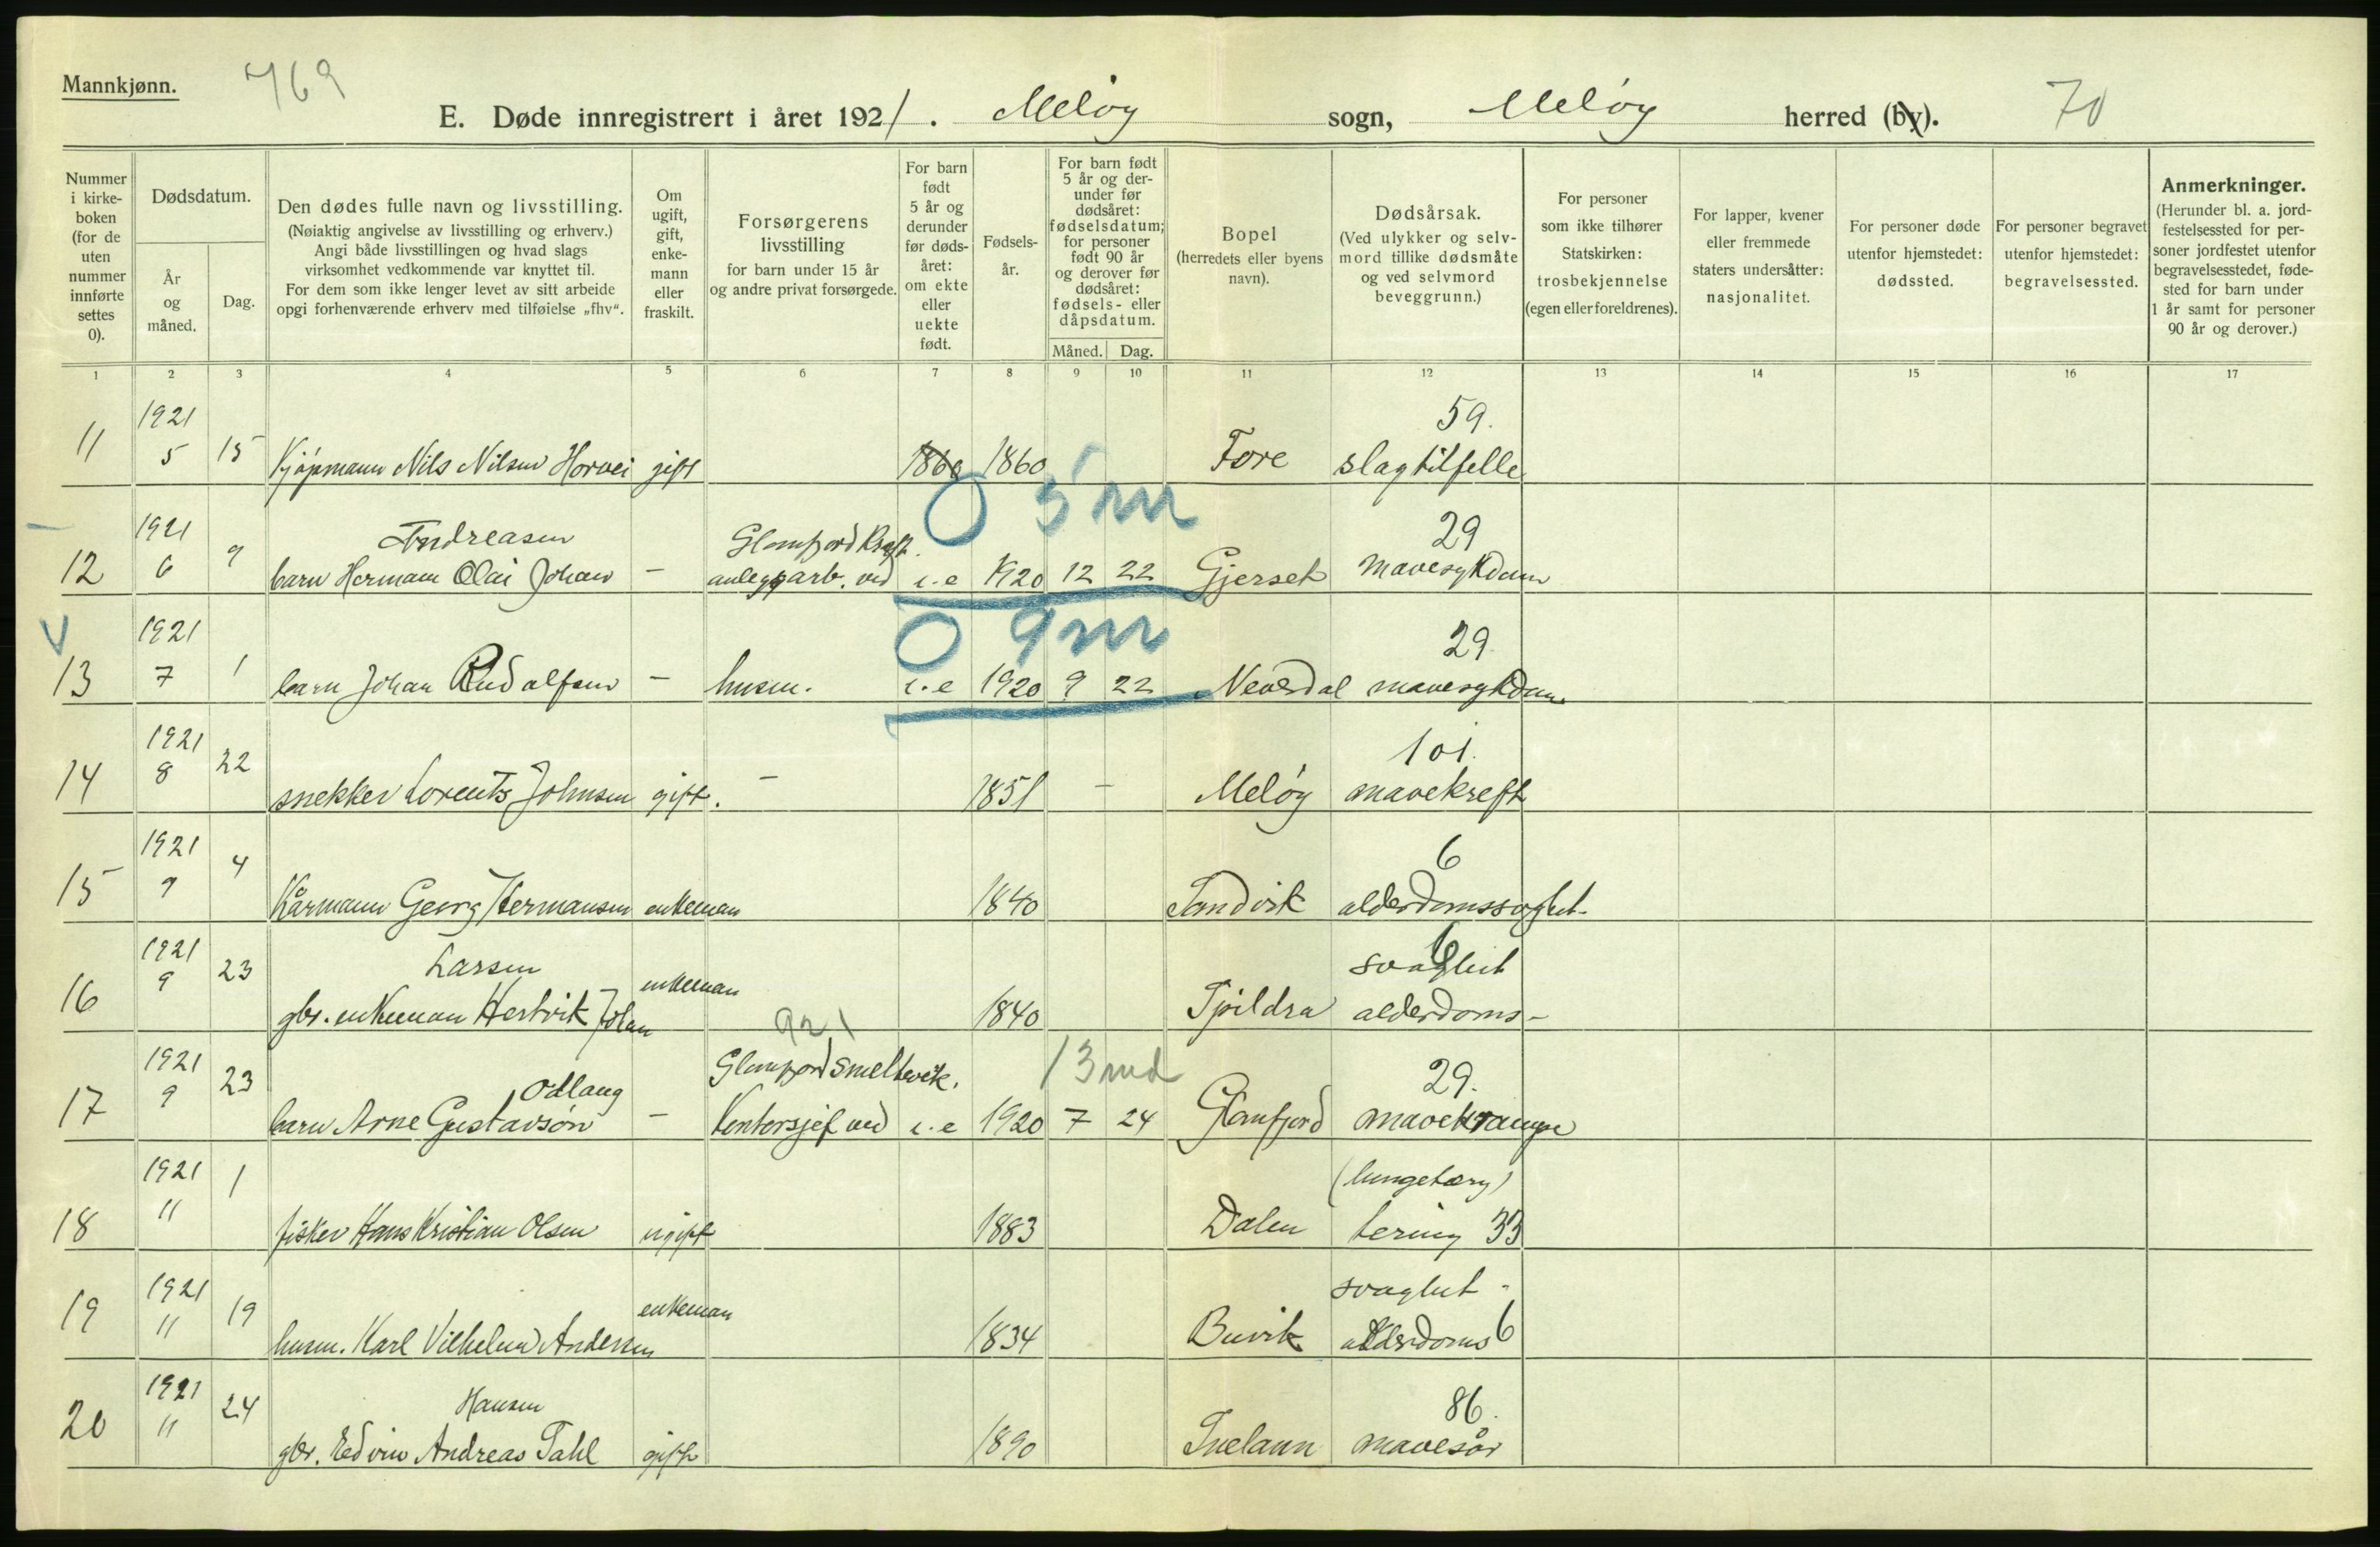 Mannkjønn.
769
E. Døde innregistrert i året 1921. Meløy sogn, Meløy herred (by).
70
Nummer i kirke-boken (for de uten nummer innførte settes 0).
Dødsdatum.
År og måned.
Dag.
Den dødes fulle navn og livsstilling.
(Nøiaktig angivelse av livsstilling og erhverv.)
Angi både livsstillingen og hvad slags
virksomhet vedkommende var knyttet til.
For dem som ikke lenger levet av sitt arbeide
opgi forhenværende erhverv med tilføielse „fhv“.
Om ugift, gift, enke-mann eller fraskilt.
Forsørgerens livsstilling
for barn under 15 år
og andre privat forsørgede.
For barn født 5 år og derunder før døds-året: om ekte eller uekte født.
Fødsels-år.
For barn født 5 år og der-under før dødsåret: fødselsdatum; for personer født 90 år og derover før dødsåret: fødsels- eller dåpsdatum.
Måned.
Dag.
Bopel
(herredets eller byens navn).
Dødsårsak.
(Ved ulykker og selv-mord tillike dødsmåte og ved selvmord beveggrunn.)
For personer som ikke tilhører Statskirken: trosbekjennelse (egen eller foreldrenes).
For lapper, kvener eller fremmede staters undersåtter: nasjonalitet.
For personer døde utenfor hjemstedet: dødssted.
For personer begravet utenfor hjemstedet: begravelsessted.
Anmerkninger.
(Herunder bl. a. jord-festelsessted for per-soner jordfestet utenfor begravelsesstedet, føde-sted for barn under 1 år samt for personer 90 år og derover.)
1 2 3 4 5 6 7 8 9 10 11 12 13 14 15 16 17
1921 59.
11 5 15 Kjøpmann Nils Nilsen Horvei gift 1860 1860 Fore slagtilfelle
0 5 m
1921 Andreasen Glomfjord Kraft. 29
12 6 9 barn Herman Olai Johan – anleggsarb. ved i.e 1920 12 22 Gjerset mavesykdom
0 9 m
V 1921 29
13 7 1 barn Johan Rudolfsen – husm. i.e 1920 9 22 Neverdal mavesykdom
1921 101.
14 8 22 snekker Lorents Johnsen gift. – 1851 – Meløy mavekreft
1921 6
15 9 4 Kårmann Georg Hermansen enkeman 1840 Sandvik alderdomssvaghet
1921 Larsen 6 svaghet
16 9 23 gbr. enkeman Hertvik Johan enkeman 1840 Spildra alderdoms-
921
1921 Odlaug Glomfjord smelteverk. 13 md 29.
17 9 23 barn Arne Gustavsøn – Kontorsjef ved i.e 1920 7 24 Glomfjord mavekrampe
1921 (lungetæring)
18 11 1 fisker Hans Kristian Olsen ugift 1883 Dalen tering 33
1921 svaghet -
19 11 19 husm. Karl Vilhelm Andersen enkeman 1834 Buvik alderdoms 6
1921 Hansen 86.
20 11 24 gbr. Edvin Andreas Dahl gift 1890 mavesår